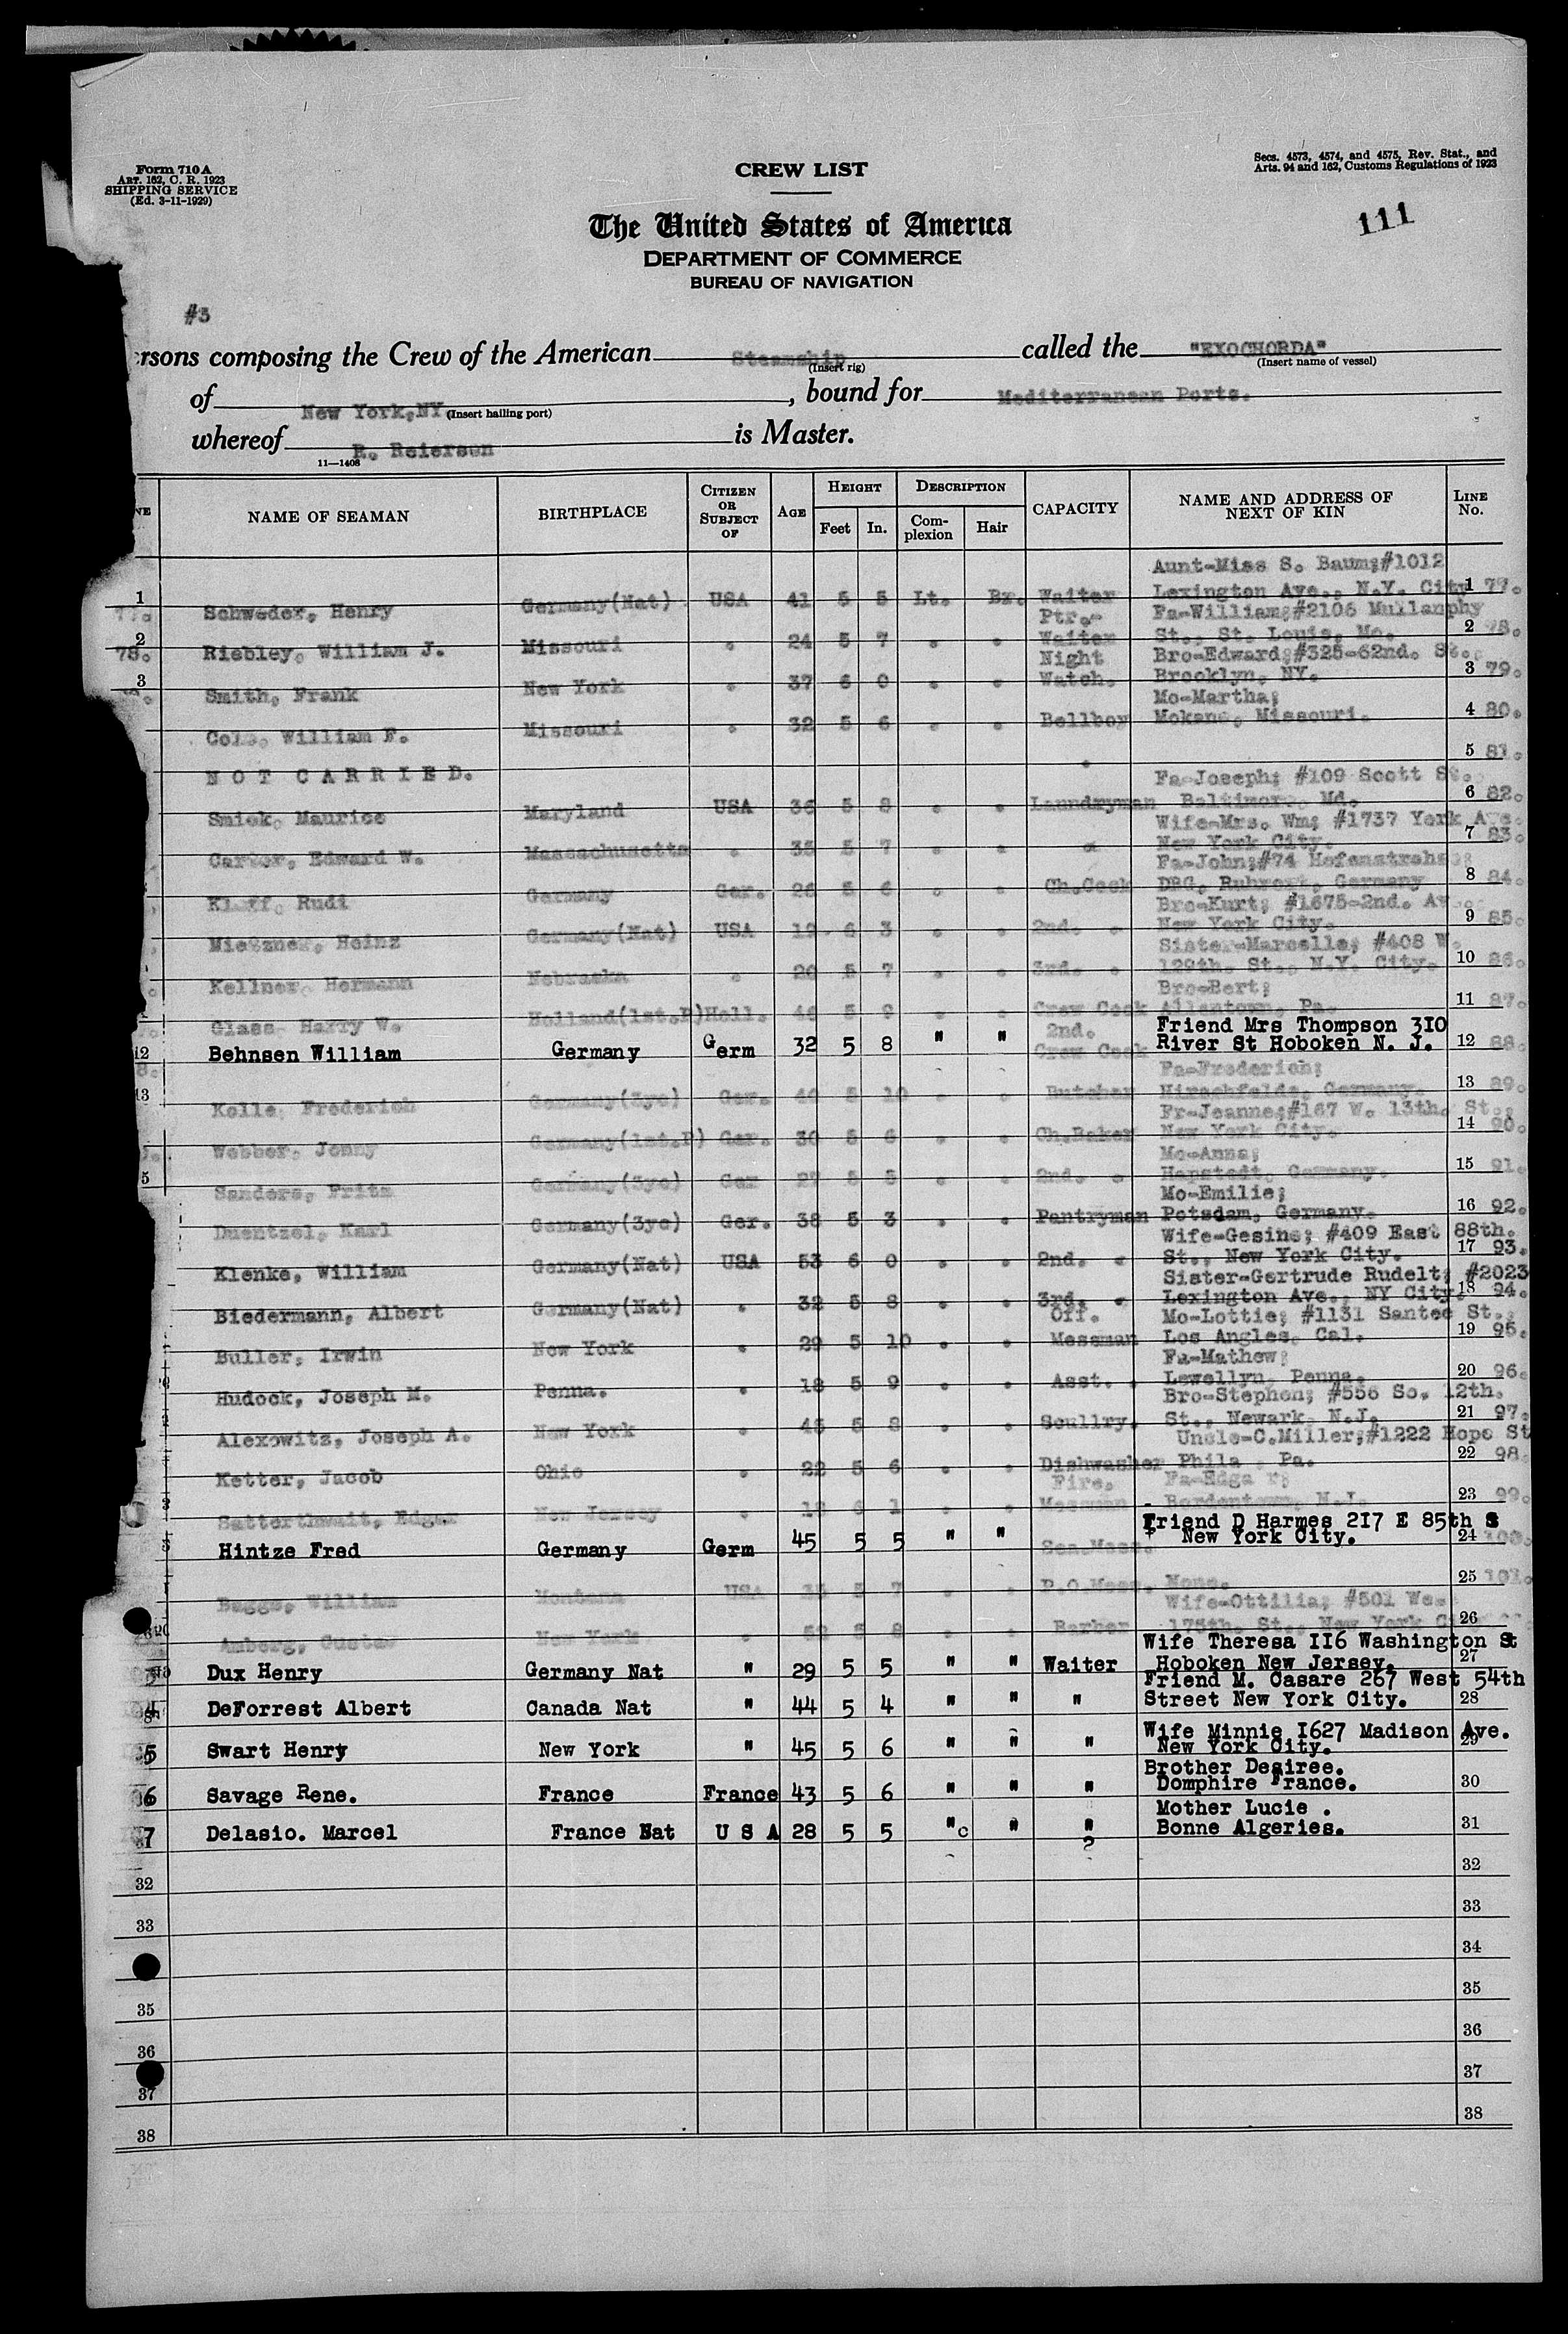 Form 710 A
ART. 162, C. R. 1923
SHIPPING SERVICE
(Ed. 3-11-1929)
CREW LIST
Secs. 4573, 4574, and 4575, Rev. Stat., and
Arts. 94 and 162, Customs Regulations of 1923
The United States of America
111
DEPARTMENT OF COMMERCE
BUREAU OF NAVIGATION
#3
rsons composing the Crew of the American Steamship called the "EXOCHORDA"
(Insert rig) (Insert name of vessel)
of New York,NY , bound for Mediterranean Ports.
(Insert hailing port)
whereof R. Reiersen is Master.
11—1408
NE NAME OF SEAMAN BIRTHPLACE CITIZEN OR SUBJECT OF AGE HEIGHT Feet In. DESCRIPTION Complexion Hair CAPACITY NAME AND ADDRESS OF NEXT OF KIN LINE No.
Aunt-Miss S. Baum;#1012
1 Schweder, Henry Germany(Nat) USA 41 5 5 Lt. Br. Waiter Lexington Ave., N.Y. City 1 77.
Ptr.- Fa-William;#2106 Mullanphy
2 78. Riebley, William J. Missouri " 24 5 7 " " Waiter St., St. Louis, Mo. 2 78.
Night Bro-Edward;#325-62nd. St.,
3 Smith, Frank New York " 37 6 0 " " Watch. Brooklyn, NY. 3 79.
Mo-Martha;
William F. Missouri " 32 5 6 " " Bellboy Mokane, Missouri. 4 80.
NOT CARRIED. 5 81.
Fa-Joseph; #109 Scott St.
Smick, Maurice Maryland USA 36 5 8 " " Laundryman Baltimore, Md. 6 82.
Wife-Mrs. Wm; #1737 York Ave.
Carter, Edward W. Massachusetts " 35 5 7 " " " New York City. 7 83.
Fa-John;#74
Rudi Germany Ger. 26 5 6 " " Ch.Cook DRG, Ruhrort, Germany 8 84.
Bro-Kurt; #1675-2nd. Av
Mietzner, Heinz Germany(Nat) USA 19 6 3 " " 2nd. " New York City. 9 85.
Sister-Marcelle; #408 W.
Kellner, Hermann Nebraska " 20 5 7 " " 3rd. " 129th. St., N.Y. City. 10 86.
Bro-Bert;
Glass, Harry W. Holland(1st.P) Holl. 46 5 9 " " Crew Cook Allentown, Pa. 11 87.
2nd. Friend Mrs Thompson 310
12 Behnsen William Germany Germ 32 5 8 " " Crew Cook River St Hoboken N. J. 12 88.
Fa-Frederich;
13 Kolle, Frederich Germany(3yc) Ger. 5 10 " " Butcher Hirschfelde, Germany. 13 89.
Fr-Jeanne;#167 W. 13th. St.,
Webber, Jonny Germany(1st.P) Ger. 30 5 6 " " Ch.Baker New York City. 14 90.
Mo-Anna;
5 Sanders, Fritz Germany(3yc) Ger 27 5 8 " " 2nd. " Hanstedt, Germany. 15 91.
Mo-Emilie;
Duentzel, Karl Germany(3yc) Ger. 38 5 3 " " Pantryman Potsdam, Germany. 16 92.
Wife-Gesine; #409 East 88th.
Klenke, William Germany(Nat) USA 53 6 0 " " 2nd. " St., New York City. 17 93.
Sister-Gertrude Rudelt; #2023
Biedermann, Albert Germany(Nat) " 32 5 8 " " 3rd. " Lexington Ave., NY City. 18 94.
Off. Mo-Lottie; #1131 Santee St.,
Buller, Irwin New York " 29 5 10 " " Messman Los Angles, Cal. 19 95.
Fa-Mathew;
Hudock, Joseph M. Penna. " 18 5 9 " " Asst. " Lewellyn, Penna. 20 96.
Bro-Stephen; #556 So. 12th.
Alexowitz, Joseph A. New York " 45 5 8 " " Scullry. St., Newark, N.J. 21 97.
Uncle-C.Miller;#1222 Hope St
Ketter, Jacob Ohio " 22 5 6 " " Dishwasher Phila , Pa. 22 98.
Fire. Fa-Edga r;
Satterthwait, Edgar New Jersey " 18 6 1 " " Messman Bordentown, N.J. 23 99.
Friend D Harmes 217 E 85th S
Hintze Fred Germany Germ 45 5 5 " " Sea.Mess. New York City. 24 100.
Baggs, William Montana USA 35 5 7 " " P.O.Mess. None. 25 101.
Wife-Ottilia; #501 Wes
Amberg, Gustav New York " 52 5 8 " " Barber 175th. St., New York 26
Wife Theresa 116 Washington St
Dux Henry Germany Nat " 29 5 5 " " Waiter Hoboken New Jersey. 27
Friend M. Casare 267 West 54th
4 DeForrest Albert Canada Nat " 44 5 4 " " " Street New York City. 28
Wife Minnie 1627 Madison Ave.
5 Swart Henry New York " 45 5 6 " " " New York City. 29
Brother Desiree.
6 Savage Rene. France France 43 5 6 " " " Domphire France. 30
Mother Lucie .
7 Delasio. Marcel France Nat U S A 28 5 5 " c " " Bonne Algeries. 31
?
32 32
33 33
34
35 35
36 36
37 37
38 38